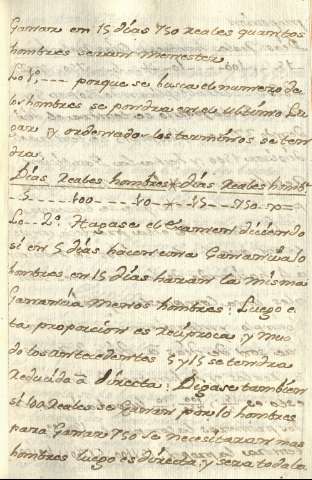 Ganar en 15 días 750 reales quantos
hombres seran menester
Lo 1º, --- porque se busca el numero de
los hombres se pondra en el ultimo Lu
gar y ordenados los terminos se ten
dra.
Días Reales hombres * días Reales homb.s
5 --- 100 --- 10 --- 15 --- 750 -x=
Lo -- 2º. Hagase el Examen diciendo
si en 5 días hacen una Ganancia 10
hombres en 15 días haran la misma
Ganancia menos hombres; Luego e
ta proporcion es Reciproca, y mu
do los antecedentes 5 y 15 se tendra
Reducida a directa: Digase tambien
si 100 Reales se Ganan por 10 hombres
para Ganar 750 se necesitaran mas
hombres luego es directa; y sera toda la